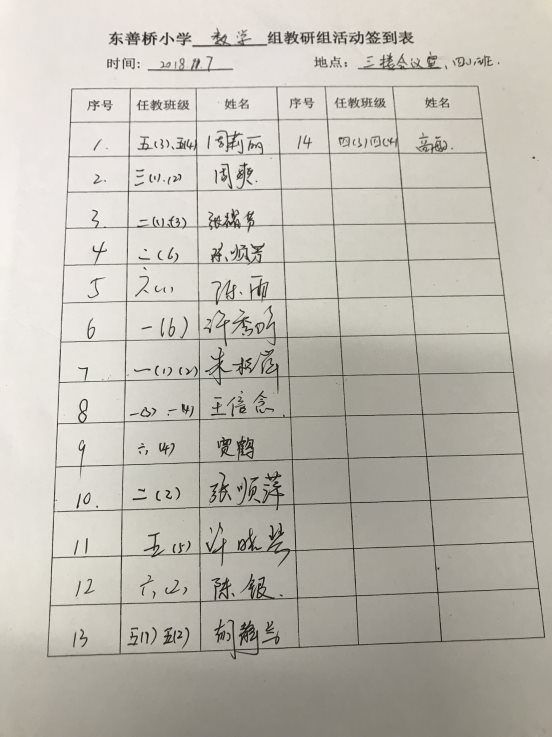 东善桥小学 数学 组教研组活动签到表
时间：2018.11.7 地点：三楼会议室，四
序号 任教班级 姓名 序号 任教班级 姓名
1. 五(3)、五(4) 周莉丽 14 四(3)四(4)
2. 三(1)、(2) 周爽
3. 二(1)、(3) 张
4 二(6) 陈顺芳
5 六(1) 陈雨
6 一(6) 许秀
7 一(1)(2) 朱
8 一(3) 一(4) 王信念
9 六(4) 贾鹤
10. 二(2) 张顺萍
11 五(5) 许晓
12 六(2) 陈银
13 五(1) 五(2) 胡静兰